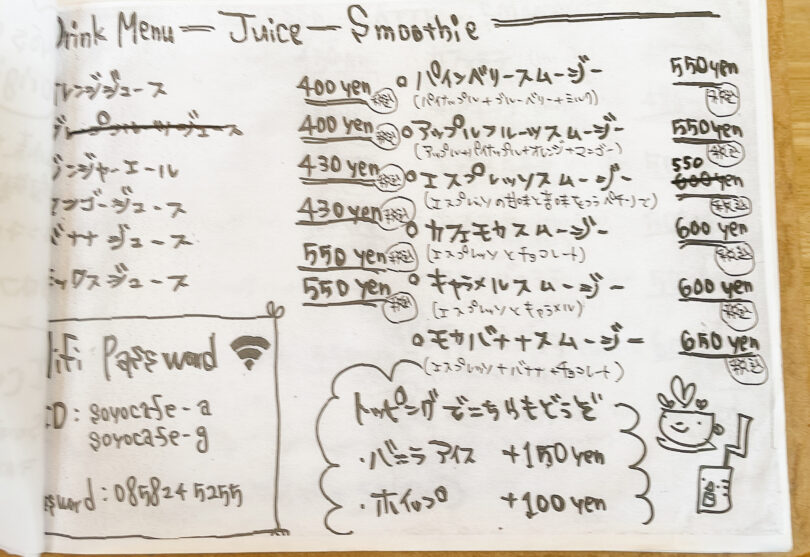 Drink Menu — Juice — Smoothie
オレンジジュース 400 yen 税込
グレープフルーツジュース 400 yen 税込
ジンジャーエール 430 yen 税込
マンゴージュース 430 yen 税込
バナナジュース 550 yen 税込
ミックスジュース 550 yen 税込
パインベリースムージー 550 yen 税込
(パイナップル+ブルーベリー+ミルク)
アップルフルーツスムージー 550 yen 税込
(アップル+パイナップル+オレンジ+マンゴー)
エスプレッソスムージー 550 600 yen 税込
(エスプレッソの甘味と苦味をフラペチーノで)
カフェモカスムージー 600 yen 税込
(エスプレッソとチョコレート)
キャラメルスムージー 600 yen 税込
(エスプレッソとキャラメル)
モカバナナスムージー 650 yen 税込
(エスプレッソ+バナナ+チョコレート)
Wifi Password
ID : soyocafe-a
soyocafe-g
password : 0858245255
トッピングでこちらもどうぞ
・バニラアイス +150 yen
・ホイップ +100 yen